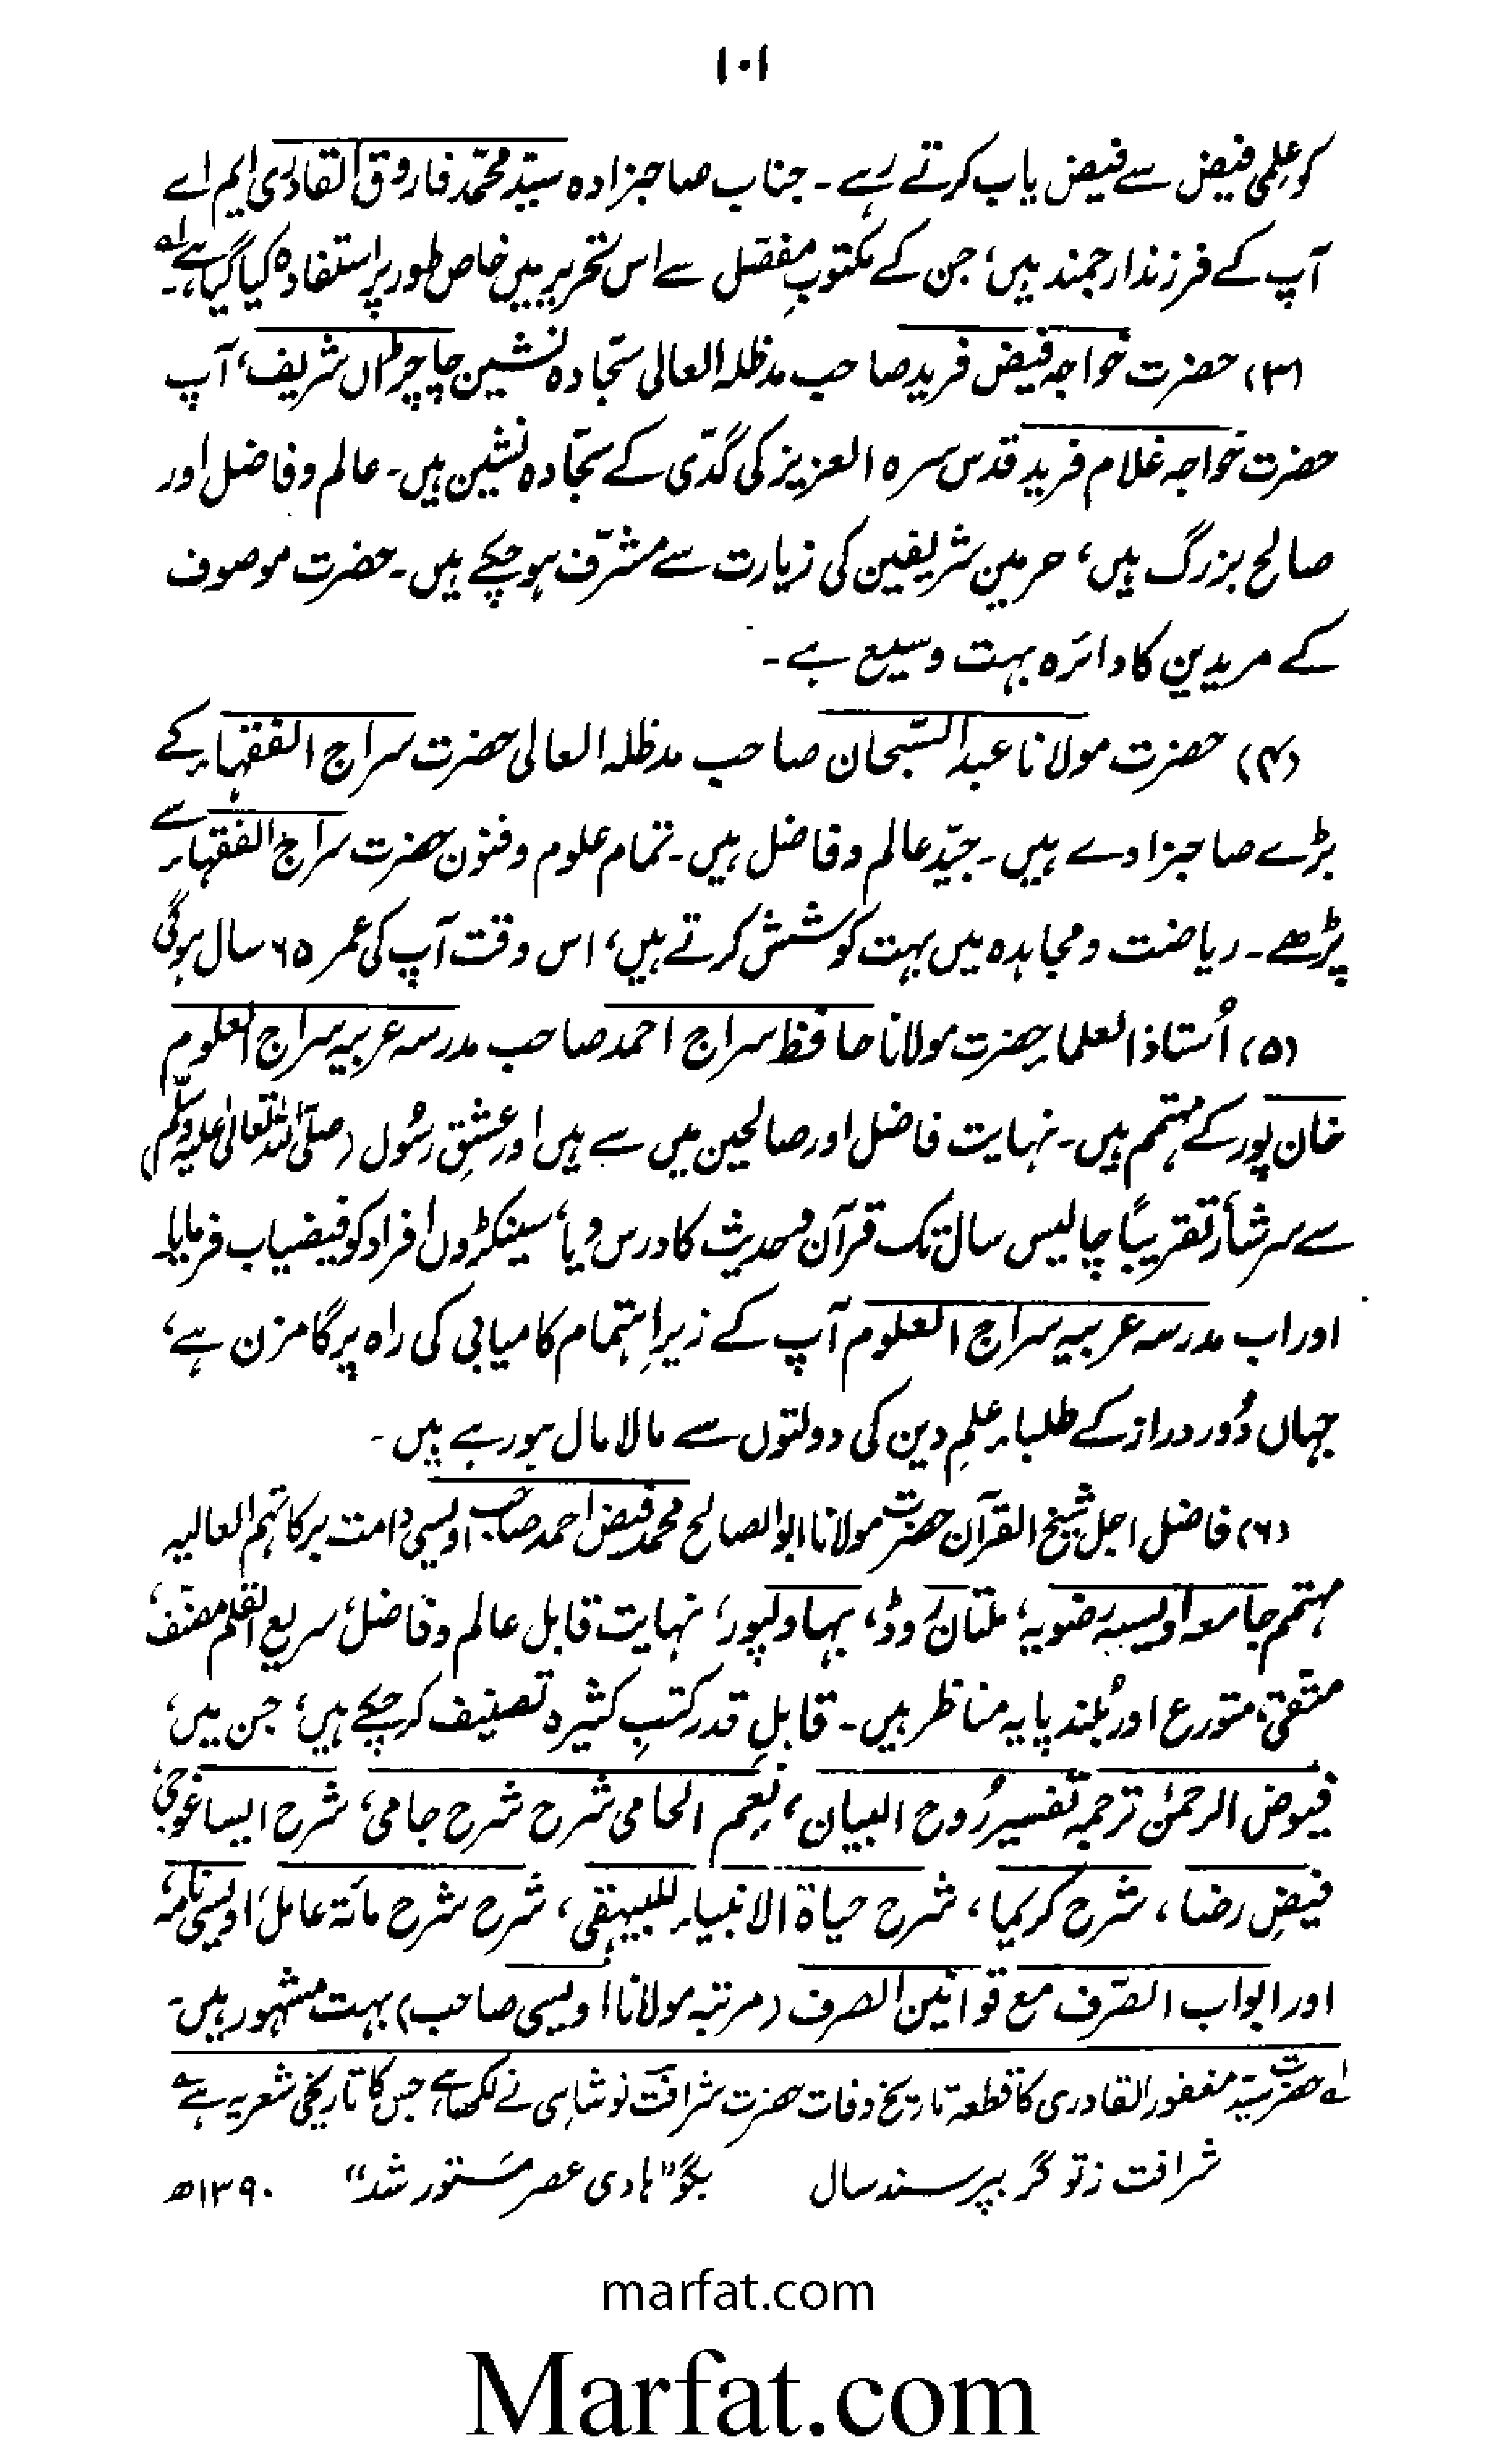 ۱۰۱
کو علمی فیض سے فیض یاب کرتے رہے ۔ جناب صاحبزادہ سیّد محمّد فاروق القادری ایم اے
آپ کے فرزند ارجمند ہیں، جن کے مکتوبِ مفصّل سے اس تحریر میں خاص طور پر استفادہ کیا گیا ہے۔ لہ
(۳) حضرت خواجہ فیض فرید صاحب مدظلہ العالی سجّادہ نشین چاچڑاں شریف، آپ
حضرت خواجہ غلام فرید قدس سرہ العزیز کی گدّی کے سجّادہ نشین ہیں۔ عالم و فاضل اور
صالح بزرگ ہیں، حرمین شریفین کی زیارت سے مشرّف ہو چکے ہیں۔ حضرت موصوف
کے مریدین کا دائرہ بہت وسیع ہے ۔
(۴) حضرت مولانا عبد السّبحان صاحب مدظلہ العالی حضرت سراج الفقہاء کے
بڑے صاحبزادے ہیں ۔ جیّد عالم و فاضل ہیں۔ تمام علوم و فنون حضرت سراج الفقہاء سے
پڑھے ۔ ریاضت و مجاہدہ میں بہت کوشش کرتے ہیں، اس وقت آپ کی عمر ۶۵ سال ہوگی
(۵) اُستاذ العلماء حضرت مولانا حافظ سراج احمد صاحب مدرسہ عربیہ سراج العلوم
خان پور کے مہتمم ہیں۔ نہایت فاضل اور صالحین میں سے ہیں اور عشقِ رسُول (صلّی اللہ تعالیٰ علیہ وسلّم)
سے سرشار، تقریباً چالیس سال تک قرآن و حدیث کا درس دیا، سینکڑوں افراد کو فیضیاب فرمایا۔
اور اب مدرسہ عربیہ سراج العلوم آپ کے زیرِ اہتمام کامیابی کی راہ پر گامزن ہے،
جہاں دُور دراز کے طلباء علمِ دین کی دولتوں سے مالا مال ہو رہے ہیں ۔
(۶) فاضل اجل شیخ القرآن حضرت مولانا ابوالصالح محمد فیض احمد صاحب اویسی دامت برکاتہم العالیہ
مہتمم جامعہ اویسیہ رضویہ، ملتان روڈ، بہاولپور، نہایت قابل عالم و فاضل، سریع القلم مصنّف،
متقی، متورع اور بُلند پایہ مناظر ہیں۔ قابلِ قدر کتبِ کثیرہ تصنیف کر چکے ہیں، جن میں،
فیوض الرحمٰن ترجمہ تفسیر رُوح البیان، نِعم الحامی شرح شرح جامی، شرح ایساغوجی،
فیضِ رضا، شرح کریما، شرح حیاۃ الانبیاء للبیہقی، شرح شرح مائۃ عامل، اویسی نامہ،
اور ابواب الصّرف مع قوانین الصرف (مرتبہ مولانا اویسی صاحب) بہت مشہور ہیں۔
لہ حضرت سیّد مغفور القادری کا قطعہ تاریخ وفات حضرت شرافت نوشاہی نے لکھا ہے جس کا تاریخی شعر یہ ہے ؎
شرافت ز تو گر بپرسند سال بگو "ہادی عصر مَستور شد" ۱۳۹۰ھ
marfat.com
Marfat.com